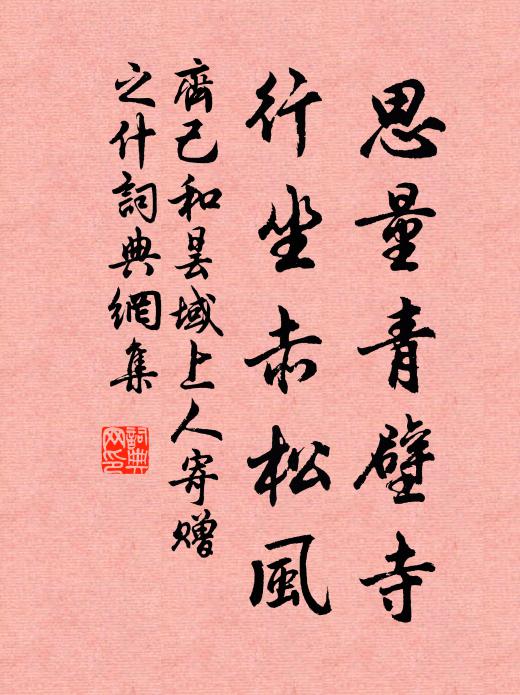 思量青壁寺
行坐赤松風
齊己和昙域上人寄赠
之什詞典網集
詞典
网印